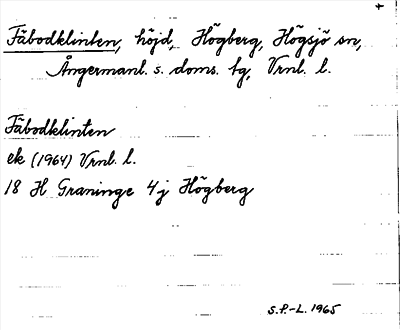 Fäbodklinten, höjd, Högberg, Högsjö sn,
Ångermanl. s. doms. tg, Vrnl. l.
Fäbodklinten
ek (1964) Vrnl. l.
18 H Graninge 4j Högberg
S.P.-L. 1965